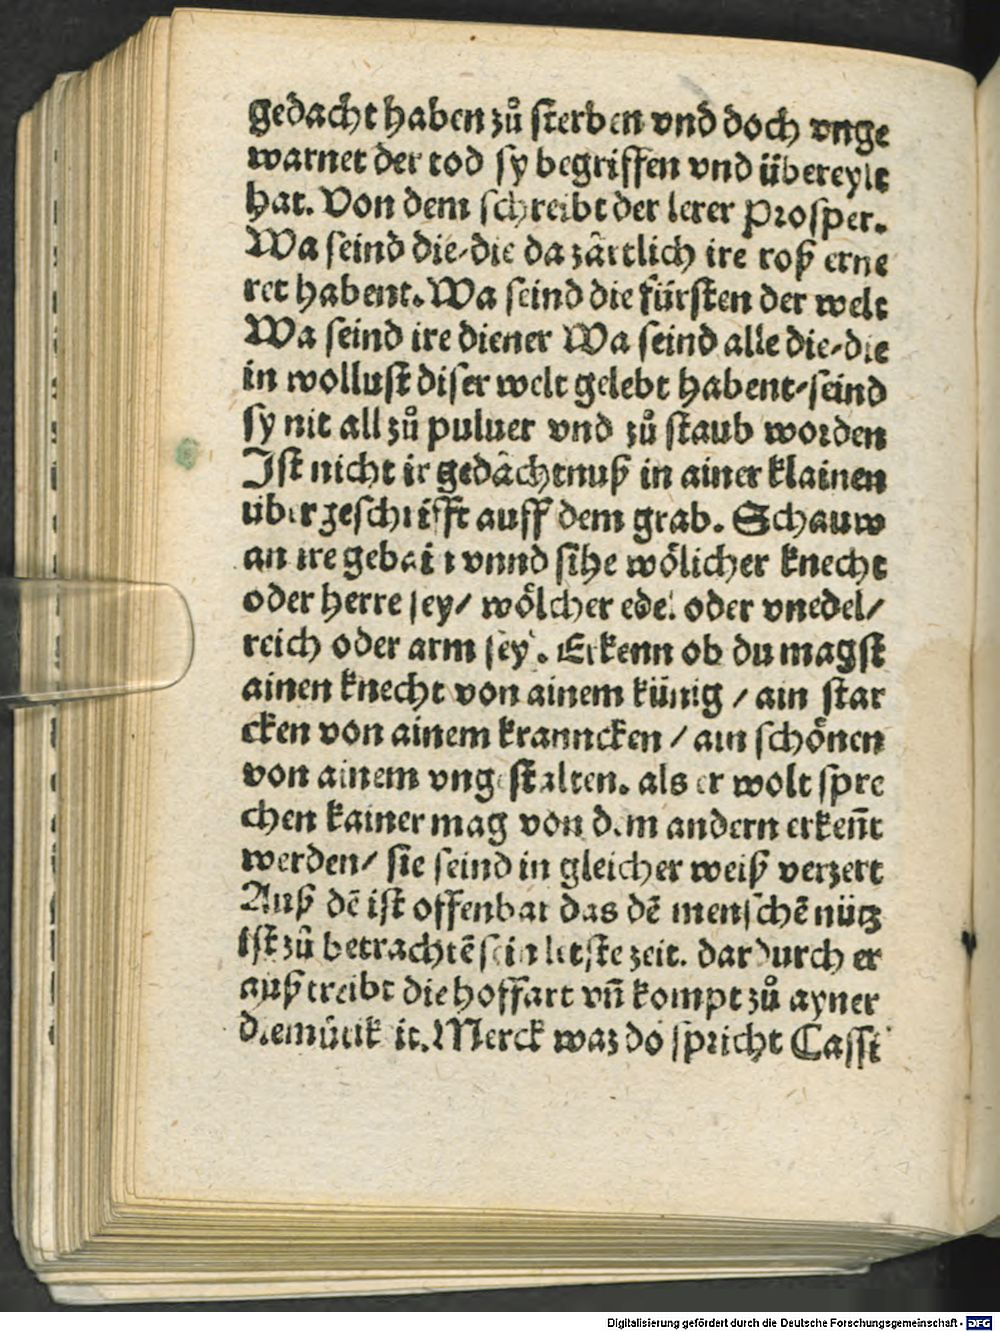 gedacht haben zů sterben vnd doch vnge
warnet der tod sy begriffen vnd übereylt
hat. Von dem schreibt der lerer Prosper.
Wa seind die-die da zärtlich ire roß erne
ret habent. Wa seind die fürsten der welt
Wa seind ire diener Wa seind alle die-die
in wollust diser welt gelebt habent-seind
sy nit all zů puluer vnd zů staub worden
Ist nicht ir gedächtnuß in ainer klainen
übergeschrifft auff dem grab. Schauw
an ire gebain vnnd sihe wölicher knecht
oder herre sey/ wölcher edel oder vnedel/
reich oder arm sey. Erkenn ob du magst
ainen knecht von ainem künig / ain star
cken von ainem kranncken / ain schönen
von ainem vngestalten. als er wolt spre
chen kainer mag von dem andern erkeñt
werden/ sie seind in gleicher weiß verzert
Auß dē ist offenbar das dē menschē nütz
ist zů betrachtē sein letste zeit. dardurch er
außtreibt die hoffart vñ kompt zů ayner
diemütikeit. Merck waz do spricht Cassi
Digitalisierung gefördert durch die Deutsche Forschungsgemeinschaft - DFG